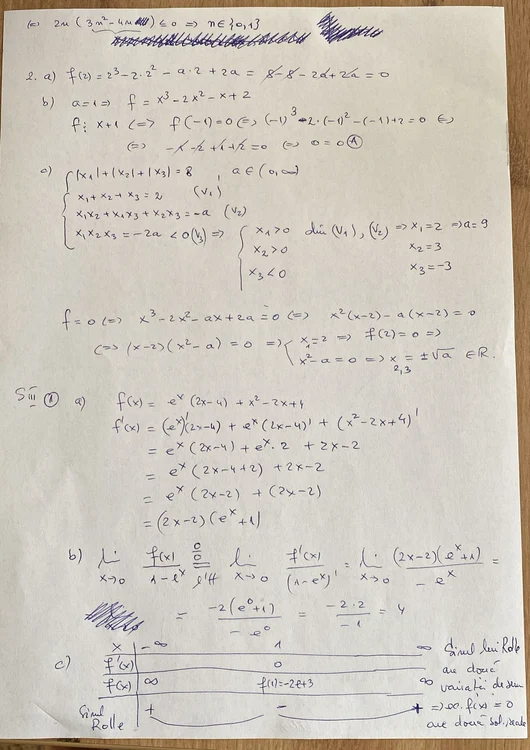 c) 2n (3n² - 4n) ≤ 0 => n ∈ {0,1}
2. a) f(2) = 2³ - 2·2² - a·2 + 2a = 8 - 8 - 2a + 2a = 0
b) a=1 => f = x³ - 2x² - x + 2
f ⋮ x+1 <=> f(-1) = 0 <=> (-1)³ - 2·(-1)² - (-1) + 2 = 0 <=>
<=> -1 - 2 + 1 + 2 = 0 <=> 0 = 0 (A)
c) |x₁| + |x₂| + |x₃| = 8 , a ∈ (0, ∞)
x₁ + x₂ + x₃ = 2 (V₁)
x₁x₂ + x₁x₃ + x₂x₃ = -a (V₂)
x₁x₂x₃ = -2a < 0 (V₃) => x₁ > 0 din (V₁), (V₂) => x₁ = 2 => a = 9
x₂ > 0 x₂ = 3
x₃ < 0 x₃ = -3
f = 0 <=> x³ - 2x² - ax + 2a = 0 <=> x²(x-2) - a(x-2) = 0
<=> (x-2)(x² - a) = 0 => x₁ = 2 => f(2) = 0 =>
x² - a = 0 => x₂,₃ = ±√a ∈ R.
SIII ① a) f(x) = eˣ (2x-4) + x² - 2x + 4
f'(x) = (eˣ)'(2x-4) + eˣ(2x-4)' + (x² - 2x + 4)'
= eˣ (2x-4) + eˣ·2 + 2x - 2
= eˣ (2x-4+2) + 2x - 2
= eˣ (2x-2) + (2x-2)
= (2x-2)(eˣ+1)
b) lim x→0 f(x)/(1-eˣ) =(0/0, l'H) lim x→0 f'(x)/(1-eˣ)' = lim x→0 (2x-2)(eˣ+1)/(-eˣ) =
= -2(e⁰+1)/(-e⁰) = (-2·2)/(-1) = 4
c) x | -∞ 1 ∞ Șirul lui Rolle
f'(x) | 0 are două
f(x) | ∞ f(1) = -2e+3 ∞ variații de semn
Șirul Rolle | + - + => ec. f(x) = 0
are două sol. reale